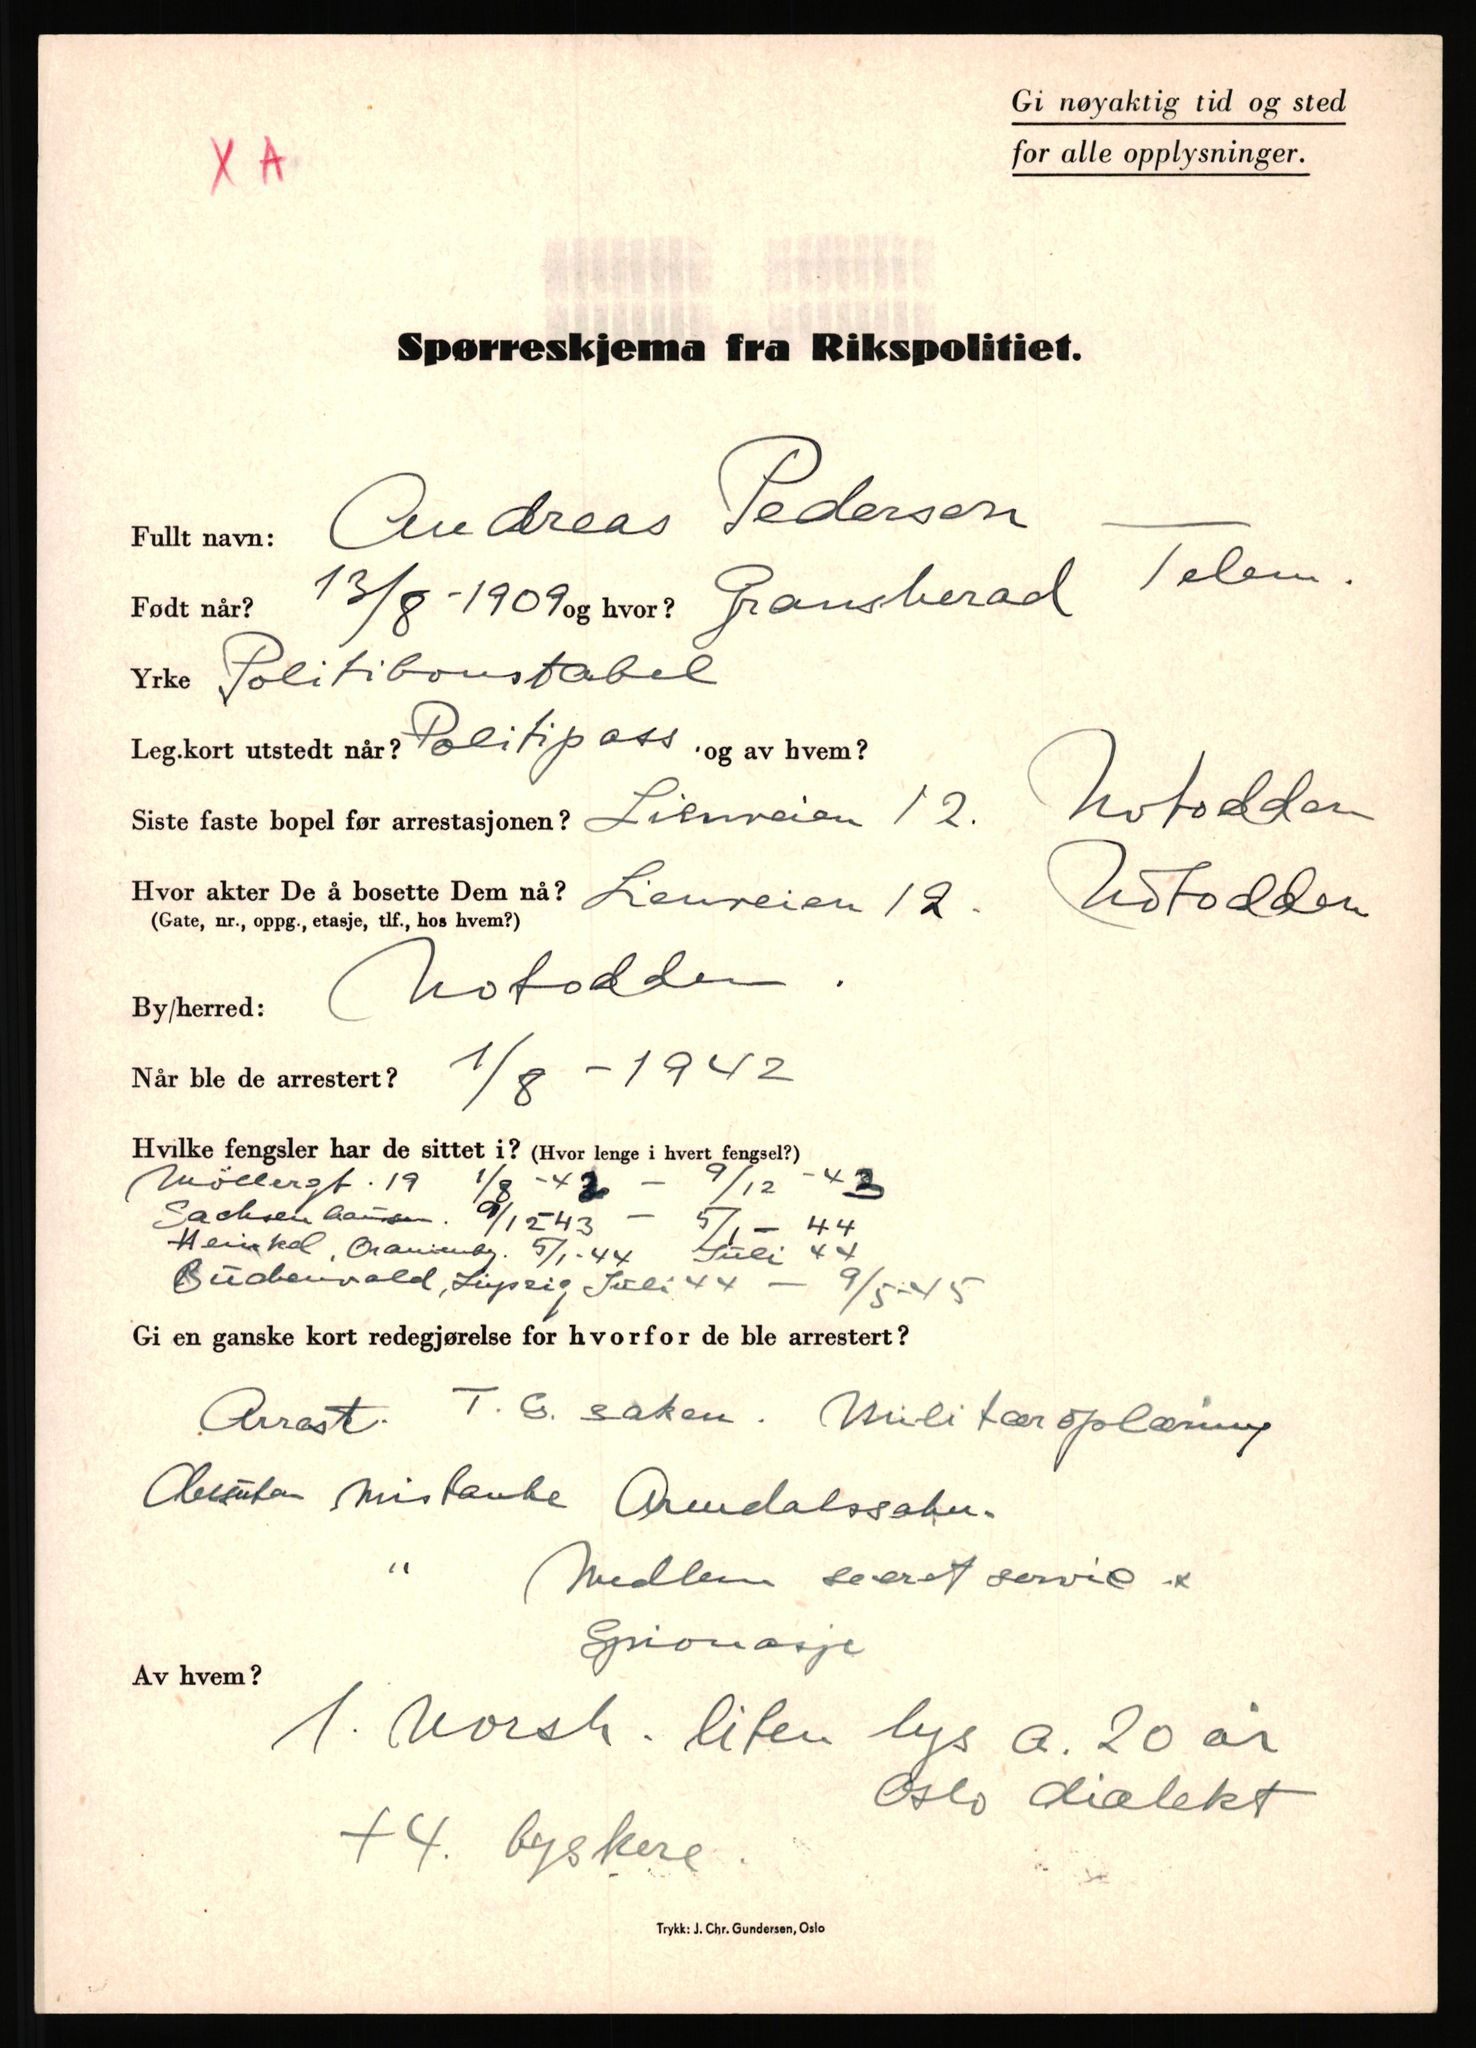 Gi nøyaktig tid og sted
for alle opplysninger.
X A
Spørreskjema fra Rikspolitiet.
Fullt navn: Andreas Pedersen
Født når? 13/8-1909 og hvor? Gransherad Telem.
Yrke Politikonstabel
Leg.kort utstedt når? Politipass og av hvem?
Siste faste bopel før arrestasjonen? Lienveien 12. Notodden
Hvor akter De å bosette Dem nå? Lienveien 12. Notodden
(Gate, nr., oppg., etasje, tlf., hos hvem?)
By/herred: Notodden.
Når ble de arrestert? 1/8 - 1942
Hvilke fengsler har de sittet i? (Hvor lenge i hvert fengsel?)
Möllergt. 19 1/8 -42 - 9/12 -43
Sachsenhausen. 9/12-43 - 5/1 - 44
Heinkel, Oranienbg. 5/1-44 Juli 44
Buchenwald, Leipzig Juli 44 - 9/5-45
Gi en ganske kort redegjørelse for hvorfor de ble arrestert?
Arrest. T.G. saken. Militæroplæring
Desuten mistanke Arendalssaken.
" Medlem secret servic
Spionasje
Av hvem?
1. Norsk. liten lys a. 20 år
Oslo dialekt
+4. tyskere.
Trykk: J. Chr. Gundersen, Oslo